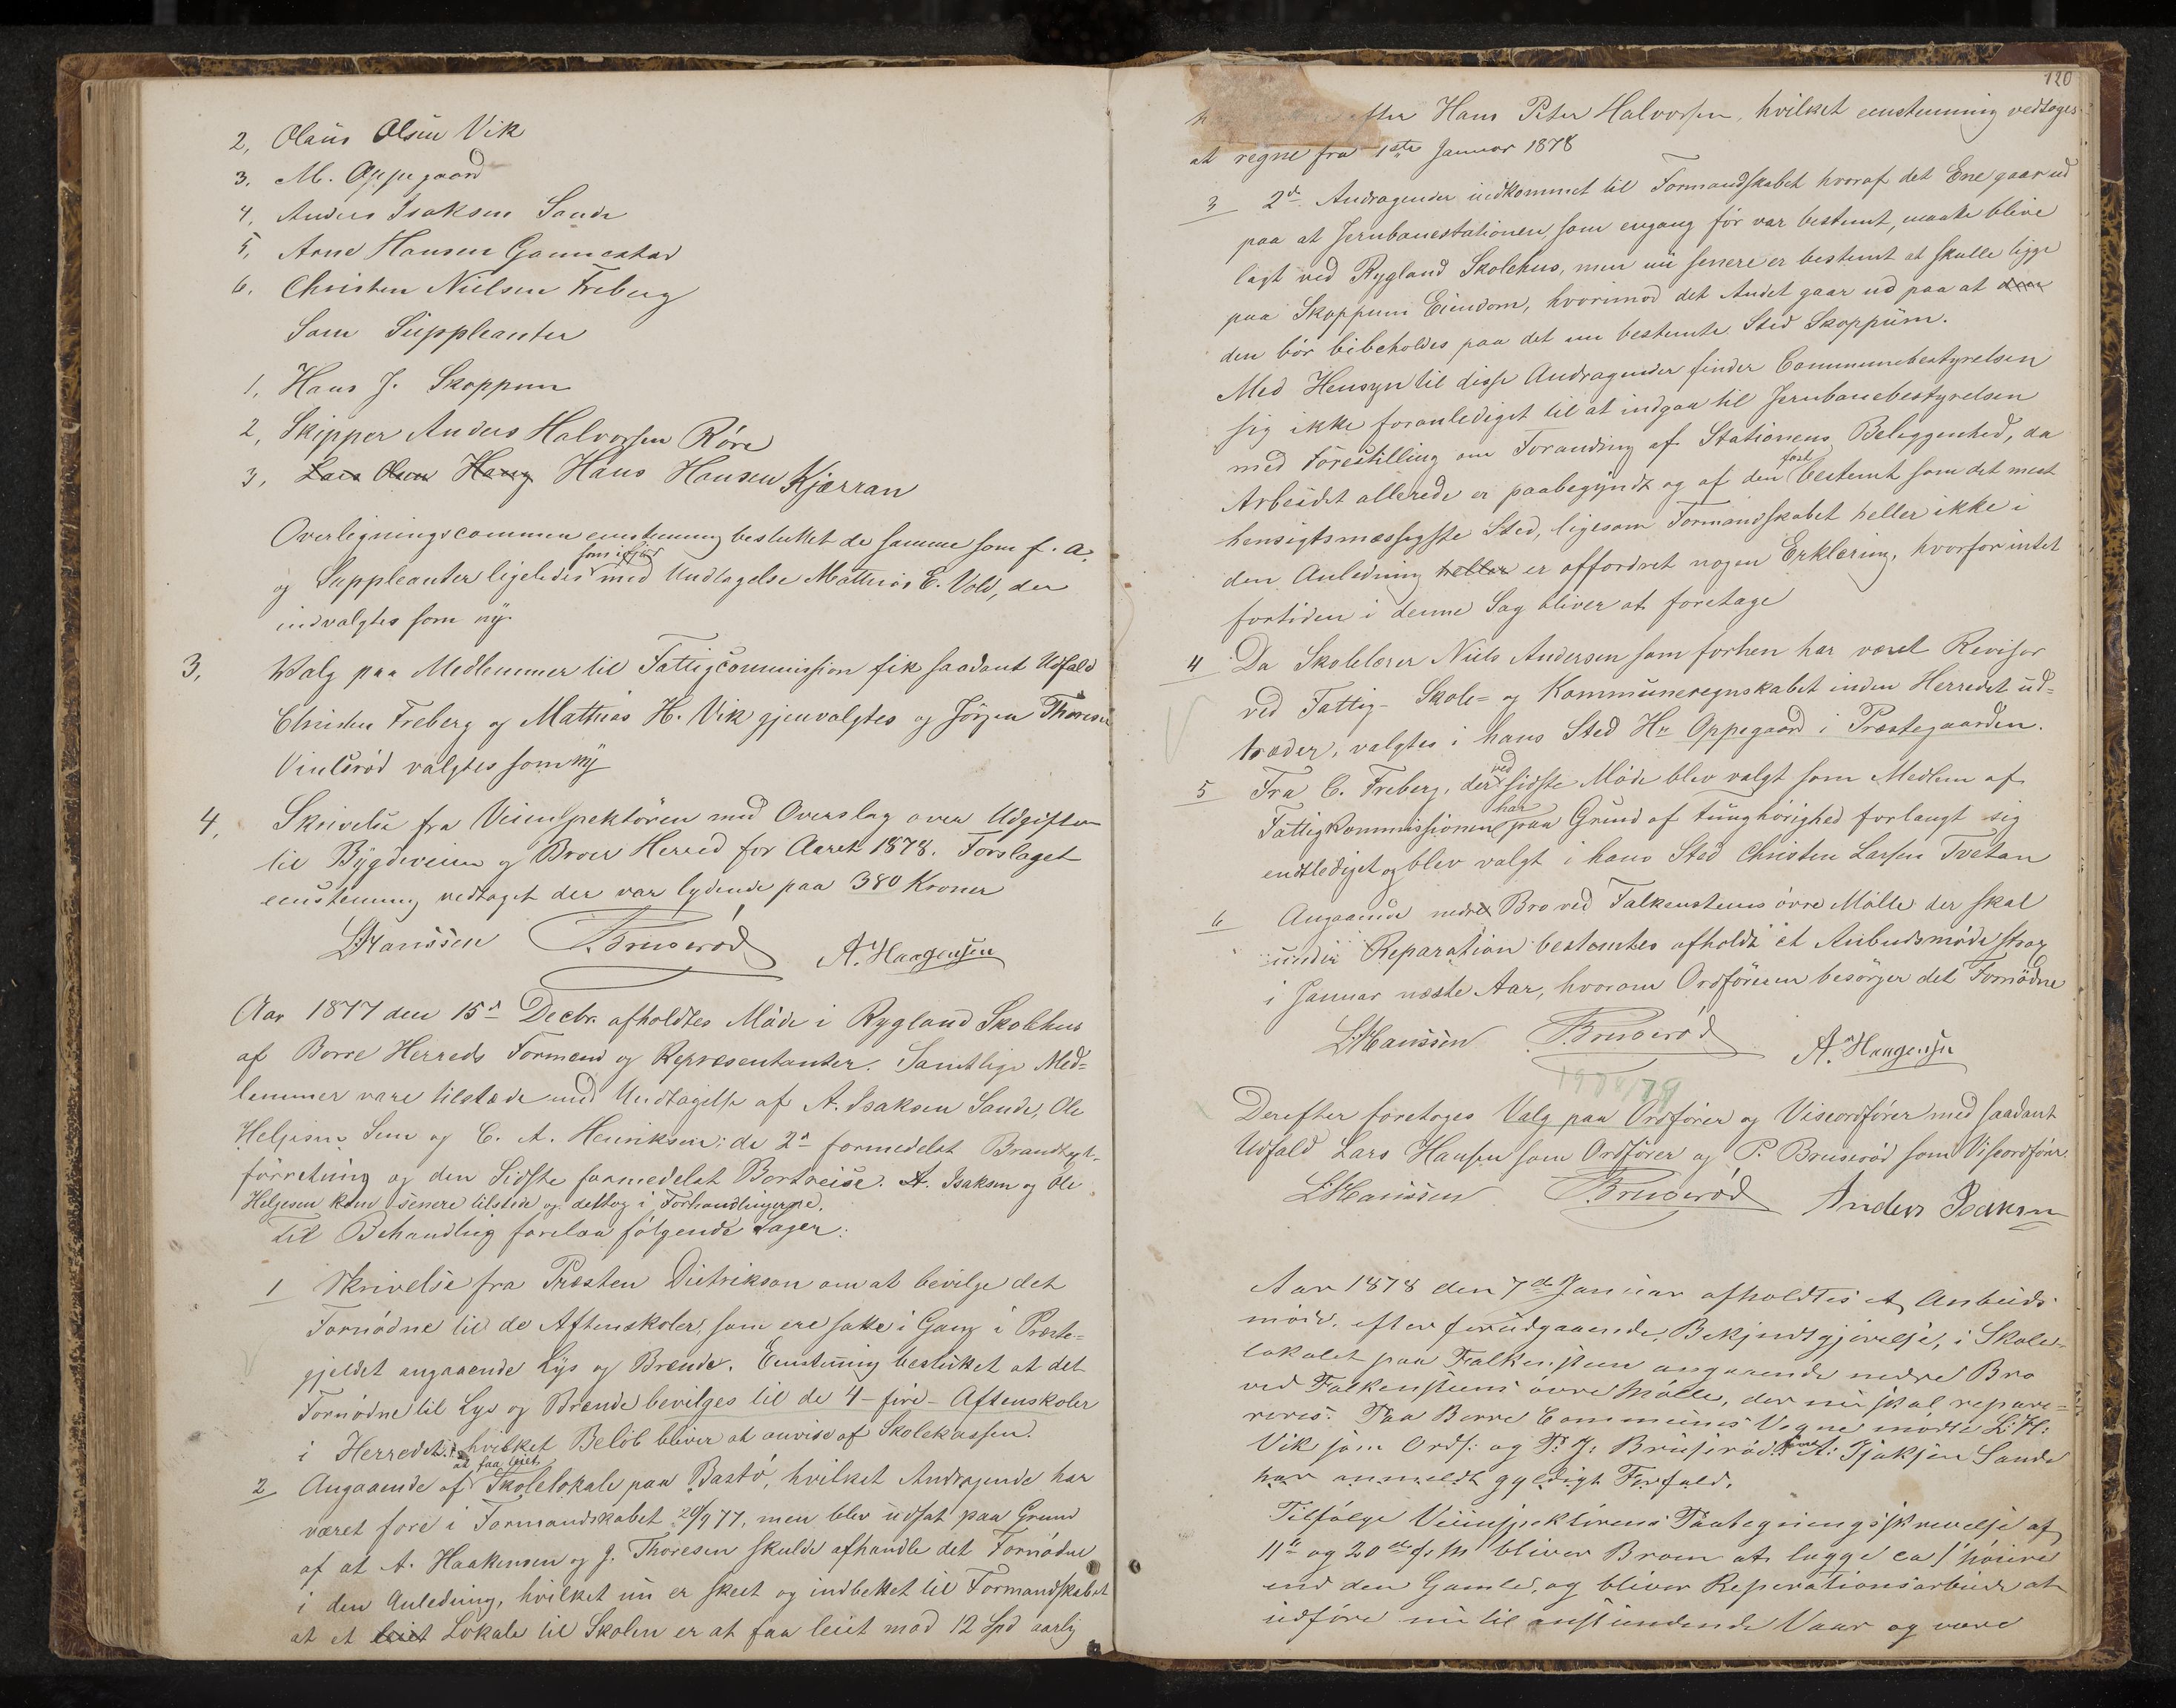 2, Olaus Olsen Vik
3. M. Oppegaard
4, Anders Isaksen Sande
5, Arne Hansen Gannestad
6. Christen Nielsen Freberg
Som Suppleanter
1, Hans J. Skoppum
2, Skipper Anders Halvorsen Röre
3, Lars Olsen Haug Hans Hansen Kjærran
Overligningscommen eenstemmig besluttet de samme som f. A.
og Suppleanter ligeledes som ifjor med Undtagelse Mathias E. Vold, der
indvalgtes som ny.
3, Valg paa Medlemmer til Fattigcommission fik saadant Udfald
Christen Freberg og Mathias H. Vik gjenvalgtes og Jörgen Thoresen
Viulsröd valgtes som ny
4, Skrivelse fra Veiinspektören med Overslag over Udgifter
til Bygdeveien og Broer Herred for Aaret 1878. Forslaget
eenstemmig vedtaget der var lydende paa 380 Kroner
L. Hanssen P. Bruseröd A. Haagensen
Aar 1877 den 15de Decbr. afholdtes Möde i Rygland Skolehus
af Borre Herreds Formænd og Repræsentanter. Samtlige Med=
lemmer vare tilstæde med Undtagelse af A. Isaksen Sande, Ole
Helgesen Sem og C. A. Henriksen; de 2de formedelst Brandtaxt-
förretning og den Sidste formedelst Bortreise. A. Isaksen og Ole
Helgesen kom senere tilstede og deltog i Forhandlingerne.
Til Behandling forelaa fölgende Sager:
1 Skrivelse fra Præsten Dietrikson om at bevilge det
Fornödne til de Aftenskoler, som ere satte i Gang i Præste=
gjeldet angaaende Lys og Brænde. Eenstemmig besluttet at det
Fornödne til Lys og Brænde bevilges til de 4 - fire - Aftenskoler
i Herredet, hvilket Belöb bliver at anvise af Skolekassen.
2 Angaaende at faa leiet af Skolelokale paa Bastö, hvilket Andragende har
været fore i Formandskabet 20/9 77, men blev udsat paa Grund
af at A. Haakensen og J. Thoresen skulde afhandle det Fornödne
i den Anledning, hvilket nu er skeet og indbettet til Formandskabet
at et leiet Lokale til Skolen er at faa leiet mod 12 Spd aarlig
120
efter Hans Peter Halvorsen, hvilket eenstemmig vedtoges
at regne fra 1ste Januar 1878
3 2de Andragender indkommet til Formandskabet hvoraf det Ene gaar ud
paa at Jernbanestationen, som engang för var bestemt, maatte blive
lagt ved Rygland Skolehus, men nu senere er bestemt at skulle ligge
paa Skoppum Eiendom, hvorimod det Andet gaar ud paa at den
den bör bibeholdes paa det nu bestemte Sted Skoppum.
Med Hensyn til disse Andragender finder Communebestyrelsen
sig ikke foranlediget til at indgaa til Jernbanebestyrelsen
med Forestilling om Forandring af Stationens Beliggenhed, da
Arbeidet allerede er paabegyndt og af den fast bestemt som det mest
hensigtsmæssigste Sted, ligesom Formandskabet heller ikke i
den Anledning heller er affordret nogen Erklæring, hvorfor intet
fortiden i denne Sag bliver at foretage
4 Da Skolelærer Niels Andersen som forhen har været Revisor
ved Fattig- Skole= og Kommuneregnskabet inden Herredet ud=
træder, valgtes i hans Sted Hr Oppegaard i Præstegaarden.
5 Fra C. Freberg, der ved sidste Möde blev valgt som Medlem af
Fattigkommissionen har paa Grund af tunghörighed forlangt sig
entlediget og blev valgt i hans Sted Christen Larsen Tvetan
6 Angaaende nedre Bro ved Falkenstens övre Mölle der skal
under Reparation bestemtes afholdt et Anbudsmöde strax
i Januar næste Aar, hvorom Ordföreren besörger det Fornödne
L. Hanssen P. Bruseröd A. Haagensen
1878/79
Derefter foretoges Valg paa Ordförer og Viseordförer med saadant
Udfald Lars Hansen som Ordförer og P. Bruseröd som Viseordförer.
L. Hanssen P. Bruseröd Anders Isaksen
Aar 1878 den 7de Januar afholdtes et Anbuds
möde, efter forudgaaende Bekjendtgjörelse, i Skole-
lokalet paa Falkensteen angaaende nedre Bro
ved Falkensteens övre Mölle, der nu skal repare=
reres. Paa Borre Communes Vegne mödte L. H:
Vik som Ordf: og P. J: Bruseröd. A: Isaksen Sande
har anmeldt gyldigt Forfald.
Tilfölge Veiinspektörens Paategningsskrivelse af
11te og 20de f. M bliver Broen at lægge ca 1' höiere
end den Gamle, og bliver Reparationsarbeide at
udföre nu til anstundende Vaar og være